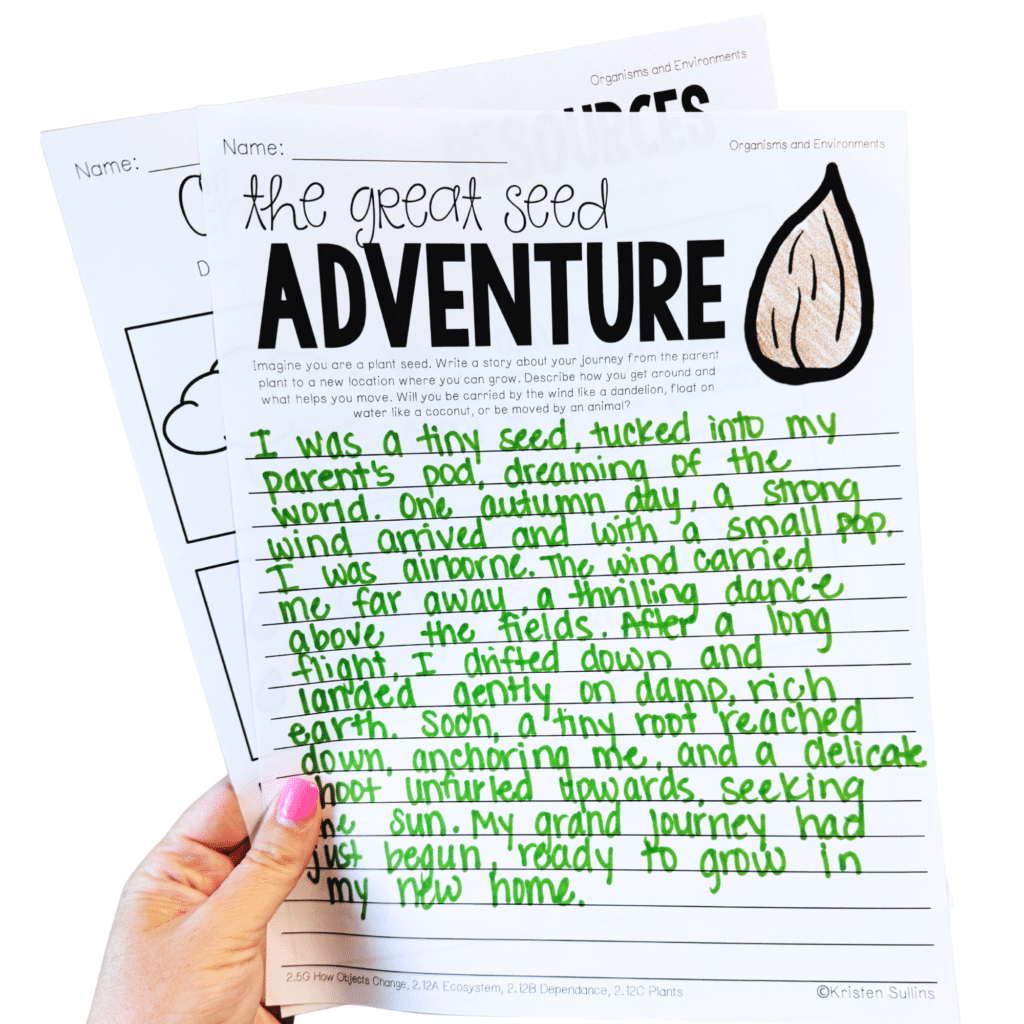 Organisms and Environments
RESOURCES
Name:
Name:
Organisms and Environments
the great seed
ADVENTURE
Imagine you are a plant seed. Write a story about your journey from the parent
plant to a new location where you can grow. Describe how you get around and
what helps you move. Will you be carried by the wind like a dandelion, float on
water like a coconut, or be moved by an animal?
I was a tiny seed, tucked into my
parent's pod, dreaming of the
world. One autumn day, a strong
wind arrived and with a small pop,
I was airborne. The wind carried
me far away, a thrilling dance
above the fields. After a long
flight, I drifted down and
landed gently on damp, rich
earth. Soon, a tiny root reached
down, anchoring me, and a delicate
hoot unfurled upwards, seeking
he sun. My grand journey had
just begun, ready to grow in
my new home.
2.5G How Objects Change, 2.12A Ecosystem, 2.12B Dependance, 2.12C Plants
©Kristen Sullins